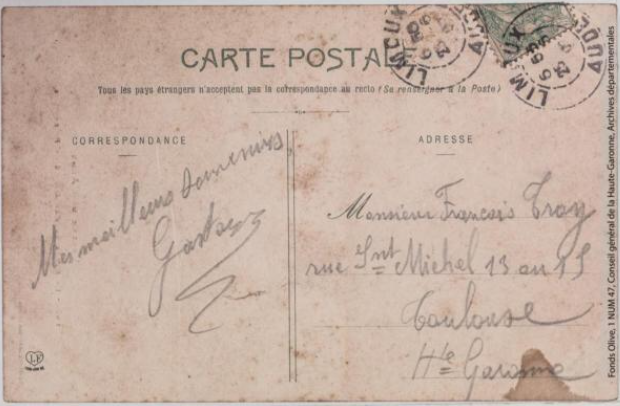 CARTE POSTALE
Tous les pays étrangers n'acceptent pas la correspondance au recto (Se renseigner à la Poste)
CORRESPONDANCE
Mes meilleurs souvenirs
Gaston
ADRESSE
Monsieur François Troy
rue Snt Michel 13 au 15
Toulouse
Hte Garonne
LIMOUX
AUDE
LIMOUX
AUDE
Fonds Olive, 1 NUM 47, Conseil général de la Haute-Garonne, Archives départementales